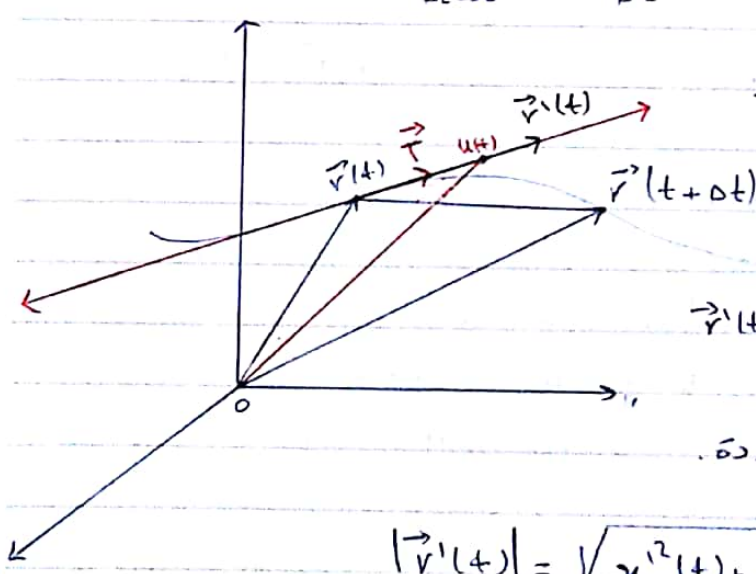 r⃗'(t)
T⃗
u(t)
r⃗(t)
r⃗(t+Δt)
r⃗'(t
0
|r⃗'(t)| = √x'²(t)+